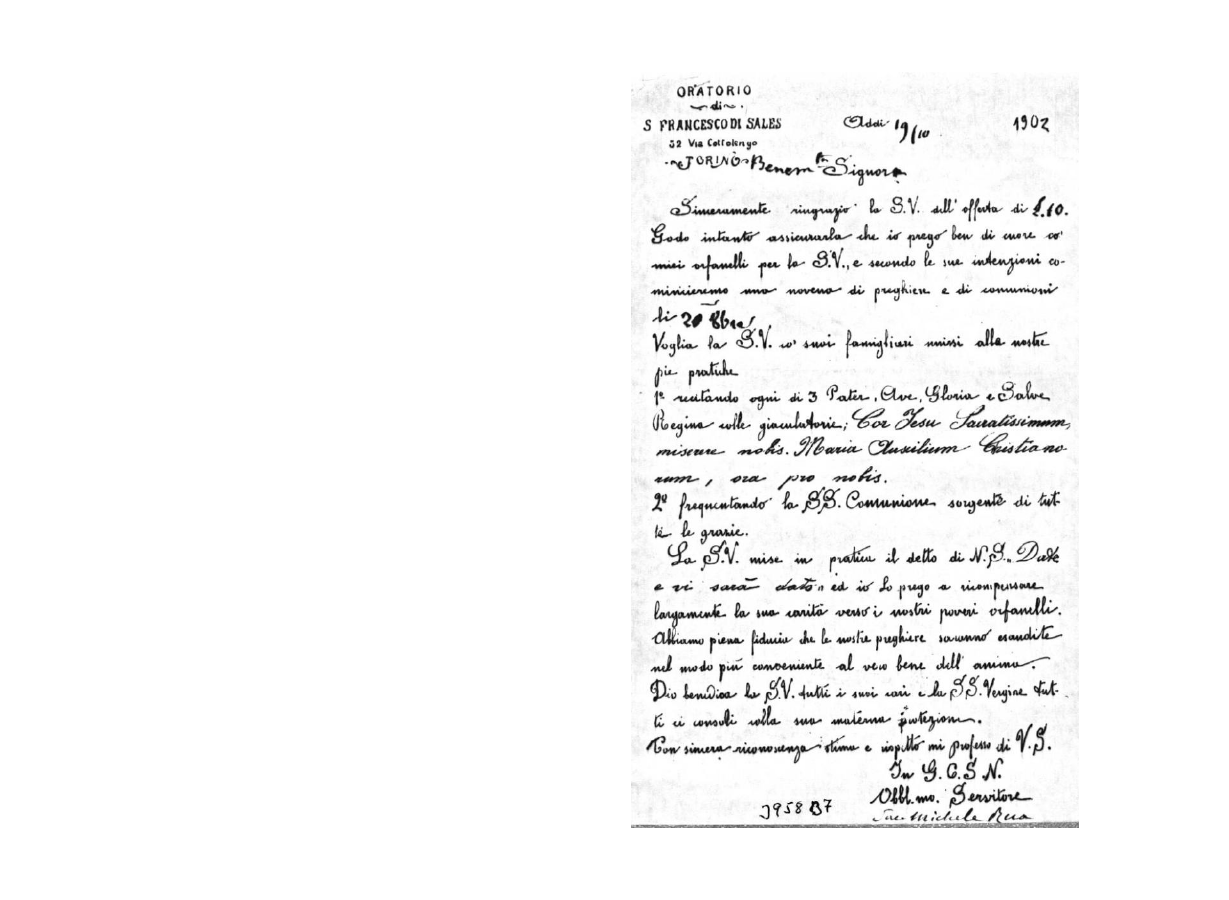 ORATORIO
di
S FRANCESCO DI SALES
32 Via Cottolengo
TORINO
Addì 19/10 1902
Benem.ta Signora
Sinceramente ringrazio la S.V. dell' offerta di £.10.
Godo intanto assicurarla che io prego ben di cuore co'
miei orfanelli per la S.V., e secondo le sue intenzioni co-
mincieremo una novena di preghiere e di comunioni
li 20 8bre
Voglia la S.V. co' suoi famigliari unirsi alle nostre
pie pratiche
1º recitando ogni dì 3 Pater, Ave, Gloria e Salve
Regina colle giaculatorie; Cor Jesu Sacratissimum,
miserere nobis. Maria Auxilium Cristiano
rum, ora pro nobis.
2º frequentando la SS. Comunione sorgente di tut-
te le grazie.
La S.V. mise in pratica il detto di N.S. „ Date
e vi sarà dato „ ed io Lo prego a ricompensare
largamente la sua carità verso i nostri poveri orfanelli.
Abbiamo piena fiducia che le nostre preghiere saranno esaudite
nel modo più conveniente al vero bene dell' anima.
Dio benedica la S.V. tutti i suoi cari e la SS. Vergine tut-
ti ci consoli colla sua materna protezione.
Con sincera riconoscenza stima e rispetto mi professo di V.S.
In G. C. S N.
Obbl.mo. Servitore
Sac. Michele Rua
3958 B7